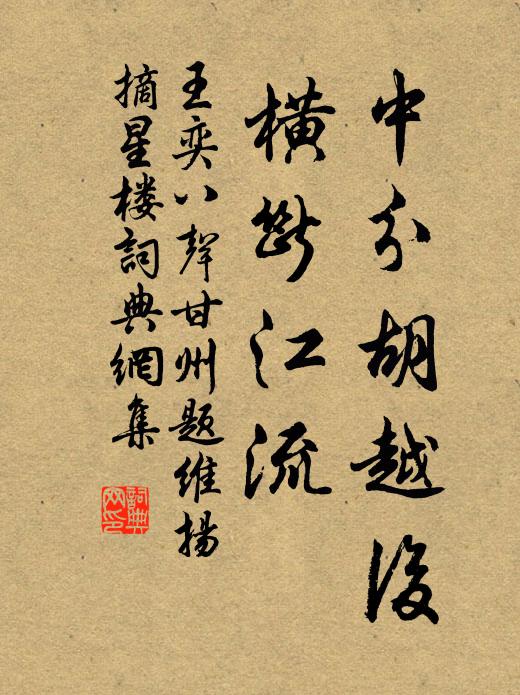 中分胡越後
橫斷江流
王奕八聲甘州題維揚
摘星楼詞典網集
詞典
网印